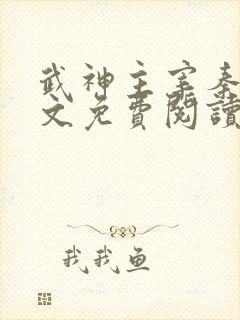 武神主宰秦
文免費閱讀
我我魚